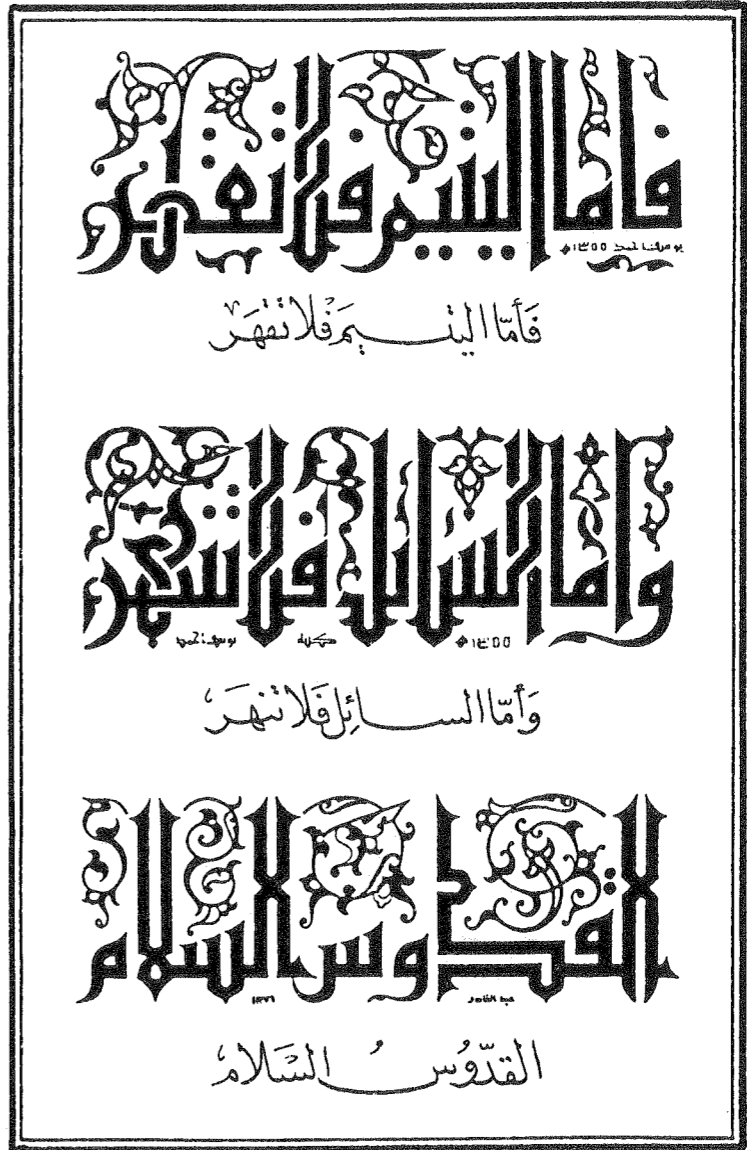 فاما اليتيم فلا تقهر
يوسف احمد ١٣٥٥ه
فَأَمّا اليتيمَ فَلا تقهَر
واما السائل فلا تنهر
١٣٥٥ه يوسف احمد
وَأَمّا السائِل فَلا تنهَر
القدوس السلام
عبد القادر ١٣٧٦
القدّوُس السَّلام